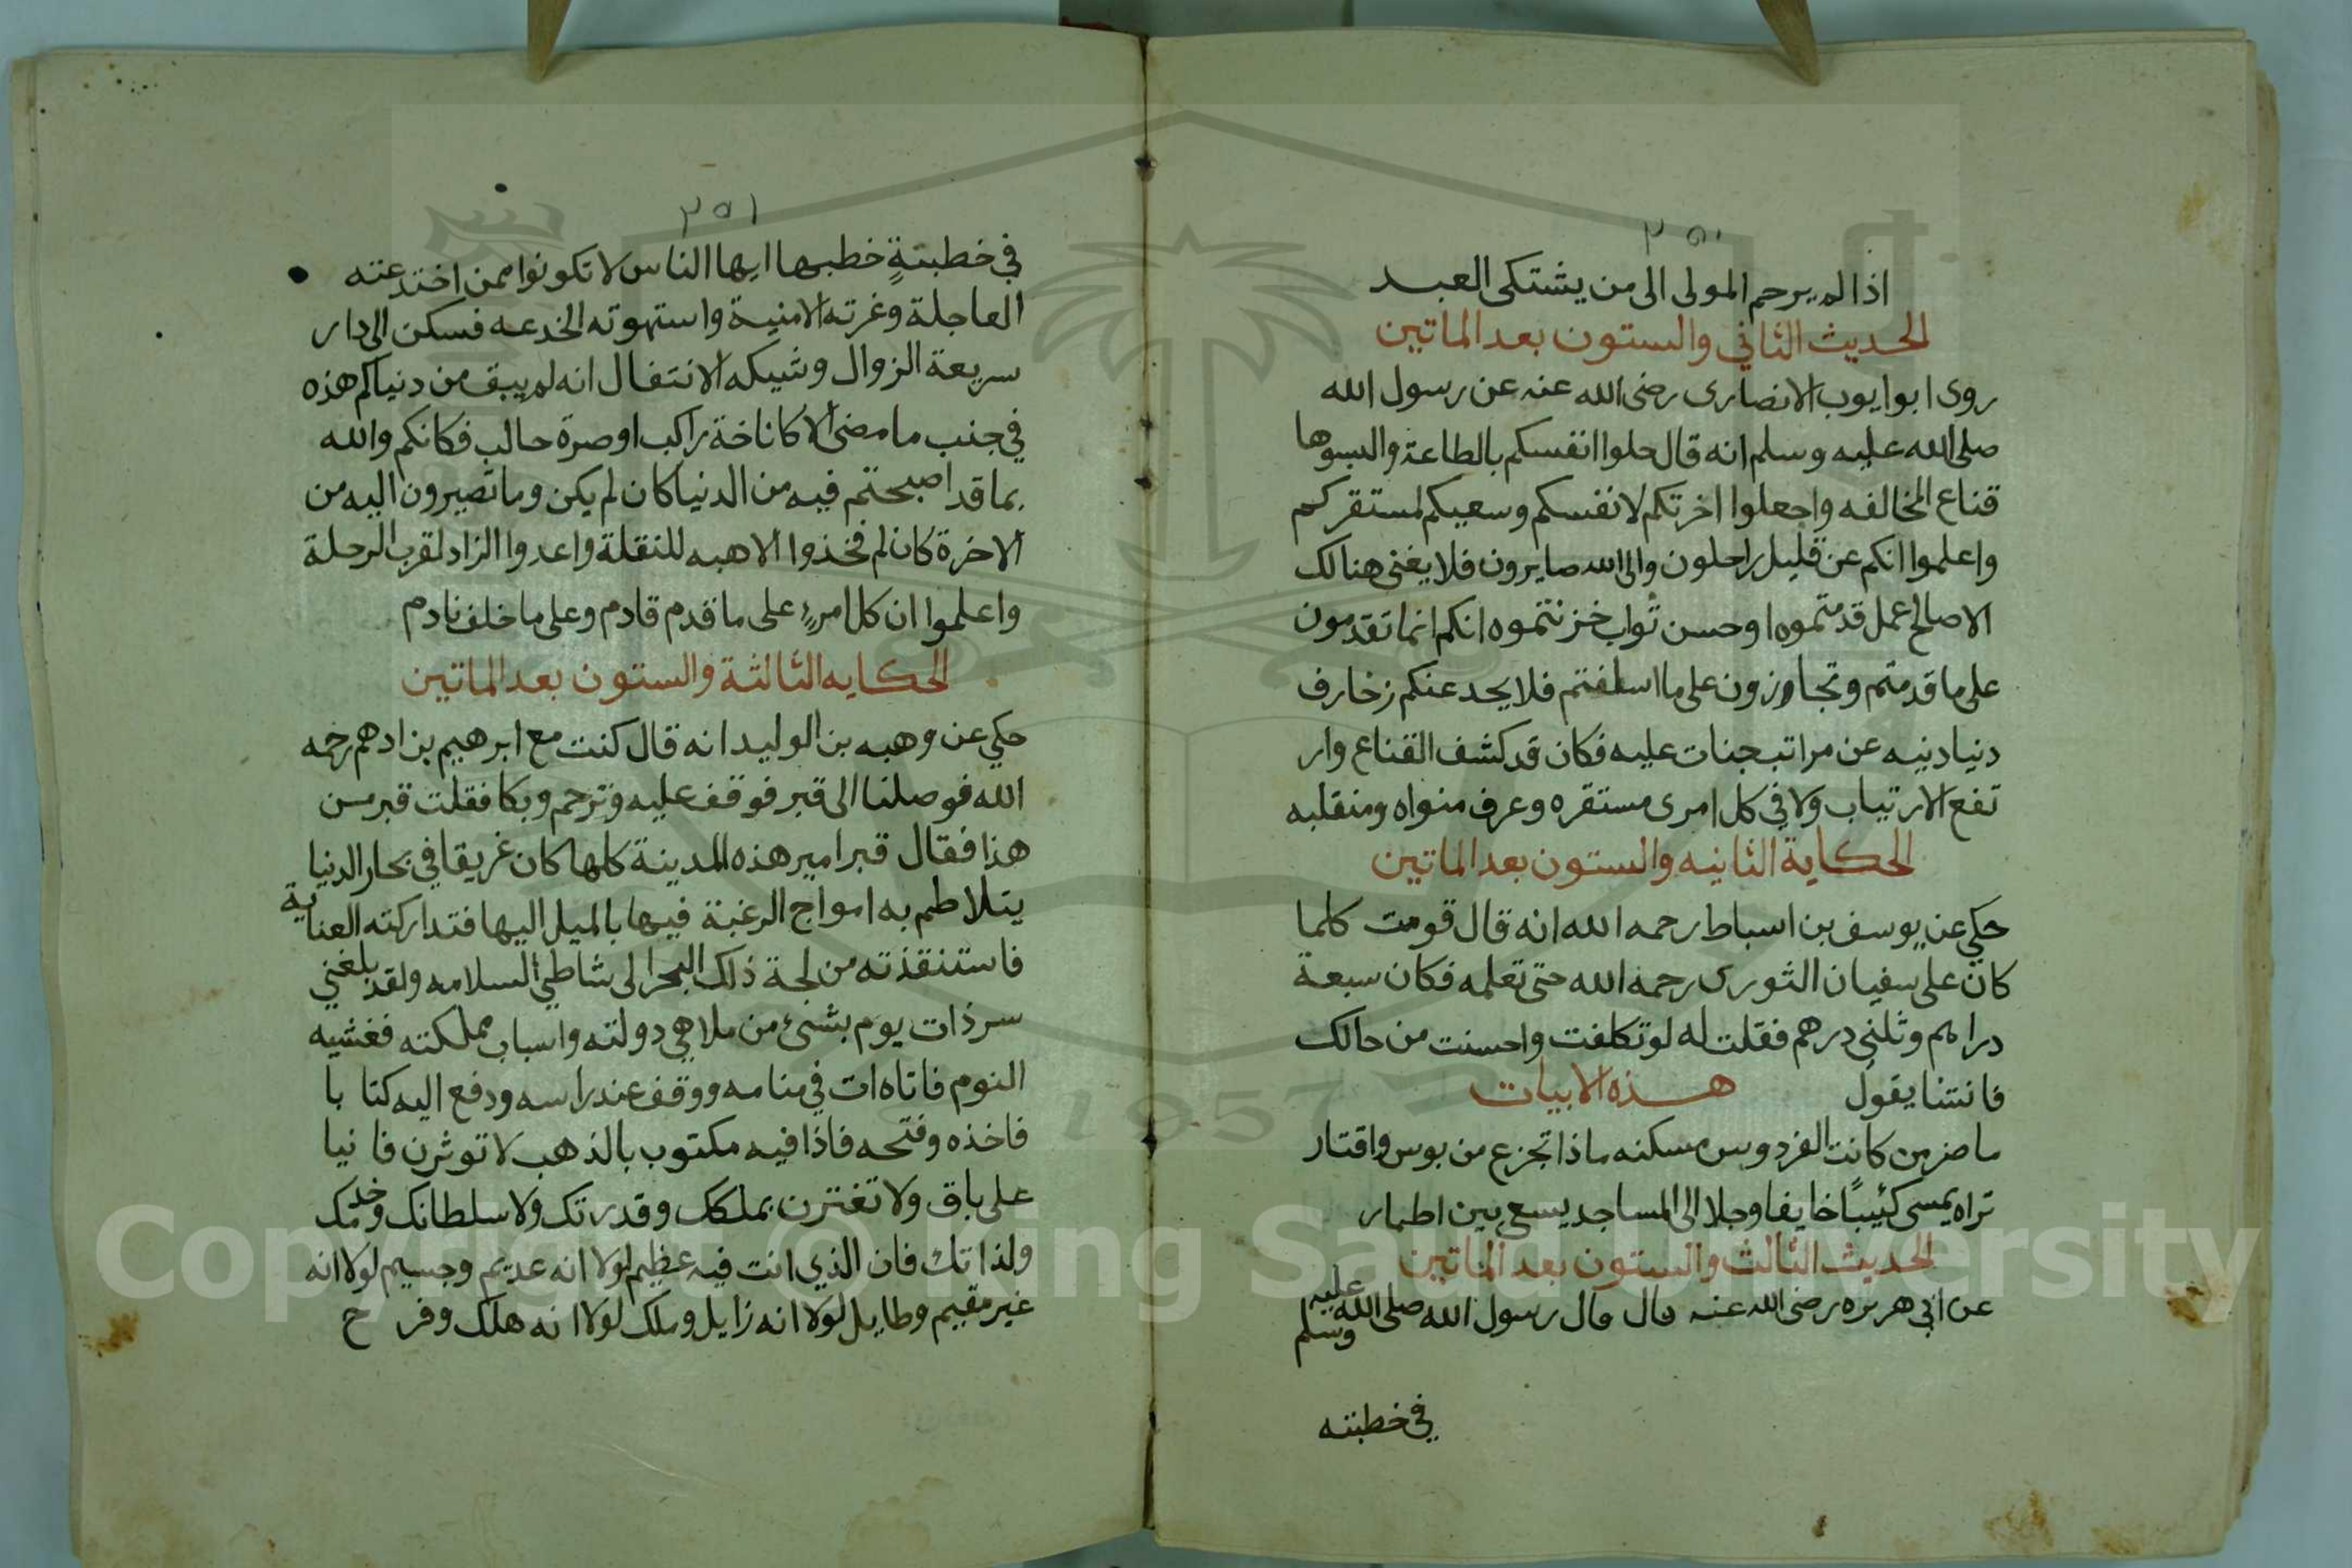 ٢٥٠
اذا لم يرحم المولى الى من يشتكى العبد
الحديث الثاني والستون بعد الماتين
روى ابو ايوب الانصارى رضى الله عنه عن رسول الله
صلى الله عليه وسلم انه قال حلوا انفسكم بالطاعة والبسوها
قناع المخالفه واجعلوا اخرتكم لانفسكم وسعيكم لمستقركم
واعلموا انكم عن قليل راحلون والى الله صايرون فلا يغنى هنالك
الا صالح عمل قدمتموه او حسن ثواب خزنتموه انكم انما تقدمون
على ما قدمتم وتجاوزون على ما اسلفتم فلا يخدعنكم زخارف
دنيا دنيه عن مراتب جنات عليه فكان قد كشف القناع وار
تفع الارتياب ولاقى كل امرى مستقره وعرف منواه ومنقلبه
الحكاية الثانيه والستون بعد الماتين
حكي عن يوسف بن اسباط رحمه الله انه قال قومت كلما
كان على سفيان الثورى رحمة الله حتى تعلمه فكان سبعة
دراهم وثلثى درهم فقلت له لو تكلفت واحسنت من حالك
فانتشا يقول هذه الابيات
ما ضر من كانت الفردوس مسكنه ماذا تجزع من بوس واقتار
تراه يمسى كئيبًا خايفا وجلا الى المساجد يسعى بين اطمار
الحديث الثالث والستون بعد الماتين
عن ابي هريره رضى الله عنه قال قال رسول الله صلى الله عليه وسلم
في خطبته
٢٥١
في خطبتةٍ خطبها ايها الناس لا تكونوا ممن اختدعته
العاجلة وغرته الامنية واستهوته الخدعه فسكن الى دار
سريعة الزوال وشيكه الانتفال انه لم يبق من دنياكم هذه
في جنب ما مضى الا كاناخة راكب او صرة حالب فكانكم والله
بما قد اصبحتم فيه من الدنيا كان لم يكن وما تصيرون اليه من
الاخرة كان لم فخذوا الاهبه للنقلة واعدوا الزاد لقرب الرحلة
واعلموا ان كل امرءٍ على ما قدم قادم وعلى ما خلف نادم
الحكايه الثالثة والستون بعد الماتين
حكي عن وهبه بن الوليد انه قال كنت مع ابرهيم بن ادهم رحمه
الله فوصلنا الى قبر فوقف عليه وترحم وبكا فقلت قبر من
هذا فقال قبر امير هذه المدينة كلها كان غريقا في بحار الدنيا
يتلاطم به امواج الرغبة فيها بالميل اليها فتداركته العناية
فاستنقذته من لجة ذلك البحر الى شاطي السلامه ولقد بلغني
سر ذات يوم بشئ من ملاهي دولته واسباب مملكته فغشيه
النوم فاتاه ات في منامه ووقف عند راسه ودفع اليه كتا با
فاخذه وفتحه فاذا فيه مكتوب بالذهب لا توثرن فا نيا
على باق ولا تغترن بملكك وقدرتك ولا سلطانك وخدمك
ولذاتك فان الذي انت فيه عظيم لولا انه عديم وجسيم لولا انه
غير مقيم وطايل لولا انه زايل وملك لولا انه هلك وفر ح
Copyright © King Saud University
1957